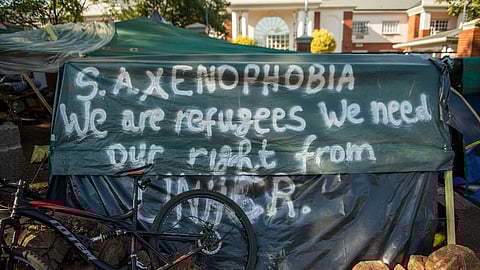 S.A.XENOPHOBIA
We are refugees We need
our right from
UNHCR.